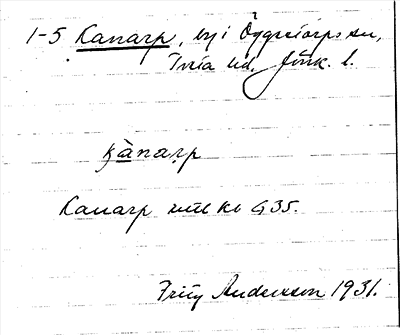 1-5 Kanarp, by i Öggestorps sn,
Tveta hd. Jönk. l.
kànarp
Kanarp uttl kb G35.
Fritz Andersson 1931.